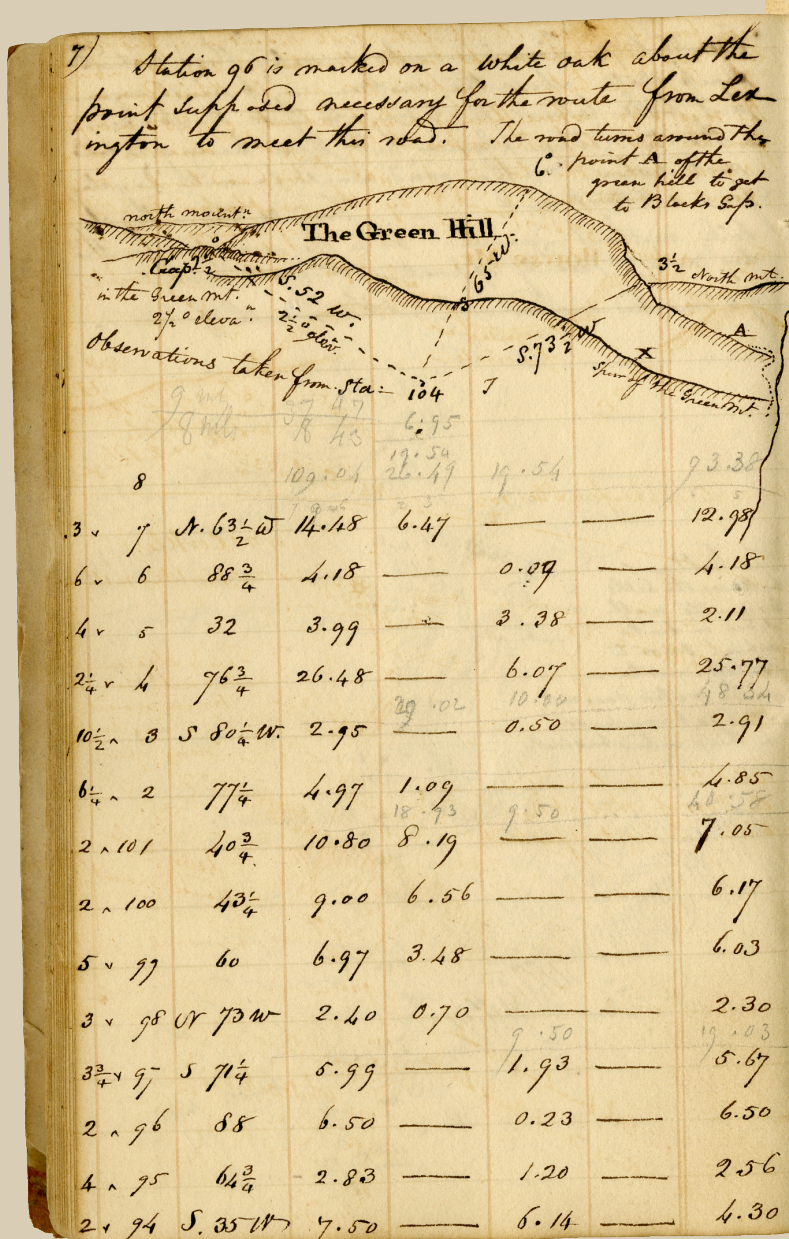 7)
Station 96 is marked on a white oak about the
point supposed necessary for the route from Lex
ington to meet this road. The road turns around the
6° point A of the
green hill to get
to Blacks Gap.
north mountn
The Green Hill
3½ North mt.
Gap
in the Green Mt.
2½° elevan
S. 52 W.
2½° elev.
S 65 W.
S. 73½ W
A
X
Spur of the Green Mt.
Observations taken from Sta: 104
9 mt 37 47 6.95
8 mils 18 43
19.54
109.04 26.49 19.54 93.38
8
3 v 7 N. 63½ W 14.48 6.47 — — 12.98
6 v 6 88¾ 4.18 — 0.09 — 4.18
4 v 5 32 3.99 — 3.38 — 2.11
2¼ v 4 76¾ 26.48 — 6.07 — 25.77
10.00 48 34
10½ ^ 3 S 80¼ W. 2.95 — 0.50 — 2.91
6¼ ^ 2 77¼ 4.97 1.09 — — 4.85
18.93 9.50 40.58
2 ^ 101 40¾ 10.80 8.19 — — 7.05
2 ^ 100 43¼ 9.00 6.56 — — 6.17
5 v 99 60 6.97 3.48 — — 6.03
3 v 98 N 73 W 2.40 0.70 — — 2.30
9.50 19.03
3¾ v 97 S 71¼ 5.99 — 1.93 — 5.67
2 ^ 96 88 6.50 — 0.23 — 6.50
4 ^ 95 64¾ 2.83 — 1.20 — 2.56
2 v 94 S. 35 W 7.50 — 6.14 — 4.30